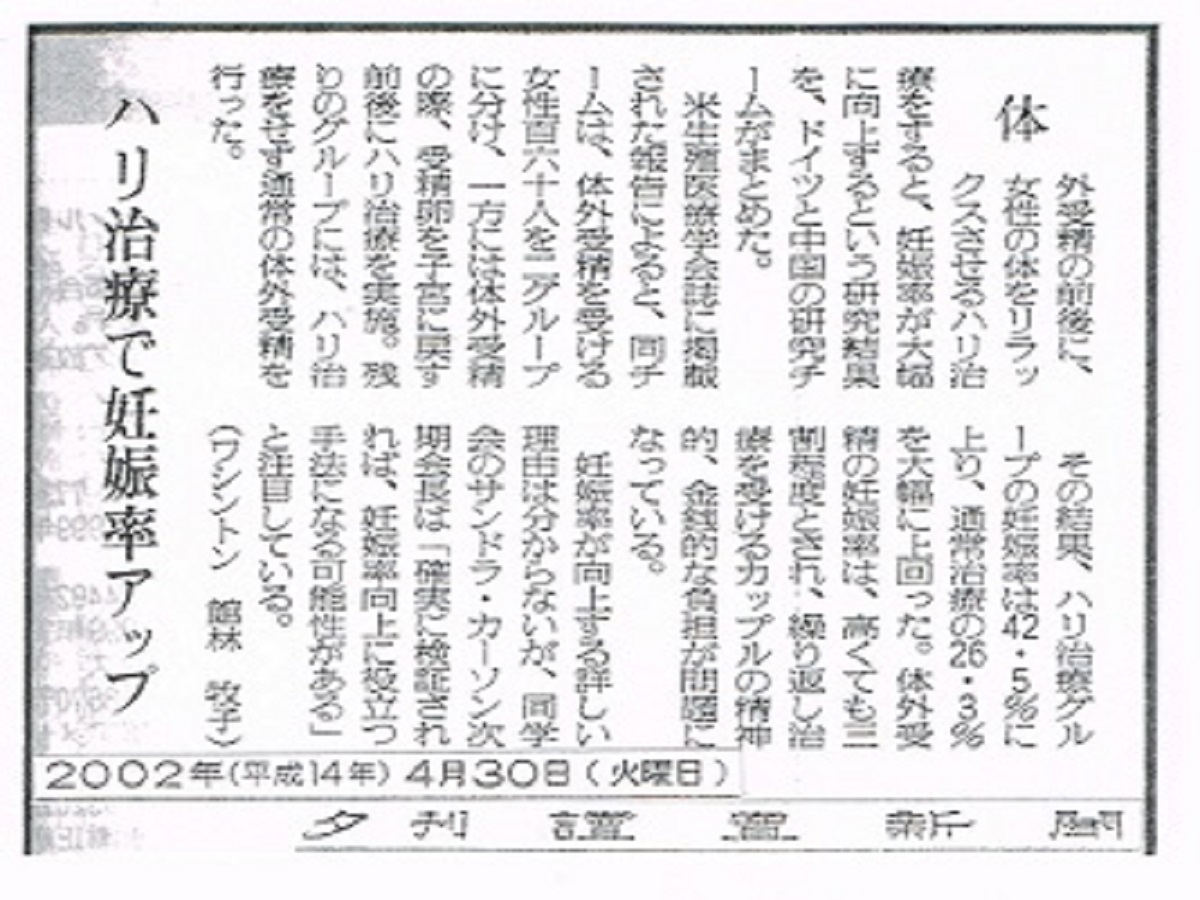 ハリ治療で妊娠率アップ
体
外受精の前後に、
女性の体をリラッ
クスさせるハリ治
療をすると、妊娠率が大幅
に向上するという研究結果
を、ドイツと中国の研究チ
ームがまとめた。
米生殖医療学会誌に掲載
された報告によると、同チ
ームは、体外受精を受ける
女性百六十人を二グループ
に分け、一方には体外受精
の際、受精卵を子宮に戻す
前後にハリ治療を実施。残
りのグループには、ハリ治
療をせず通常の体外受精を
行った。
その結果、ハリ治療グル
ープの妊娠率は42・5%に
上り、通常治療の26・3%
を大幅に上回った。体外受
精の妊娠率は、高くても三
割程度とされ、繰り返し治
療を受けるカップルの精神
的、金銭的な負担が問題に
なっている。
妊娠率が向上する詳しい
理由は分からないが、同学
会のサンドラ・カーソン次
期会長は「確実に検証され
れば、妊娠率向上に役立つ
手法になる可能性がある」
と注目している。
(ワシントン 館林 牧子)
2002年(平成14年)4月30日(火曜日)
夕刊 讀賣新聞